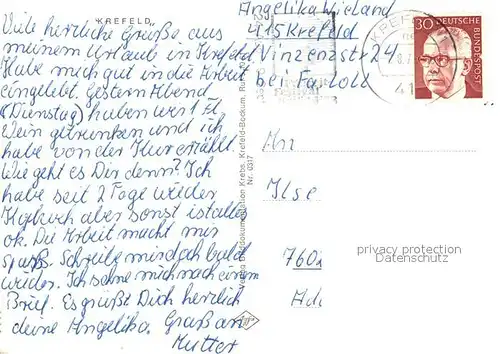 KREFELD
Viele herzliche Grüße aus
meinem Urlaub in Krefeld
Habe mich gut in die Arbeit
eingelebt. Gestern Abend
(Dienstag) haben wir 1 Fl.
Wein getrunken und ich
habe von der Kur erzählt
Wie geht es Dir denn? Ich
habe seit 2 Tage wieder
Kopfweh aber sonst ist alles
ok. Die Arbeit macht mir
spaß. Schreibe mir doch bald
wieder. Ich sehne mich nach einem
Brief. Es grüßt Dich herzlich
deine Angelika. Gruß an
Mutter
Krebs, Krefeld-Bockum,
Nr. 0317
Angelika Wieland
415 Krefeld
Vinzenzstr 24
bei
30 DEUTSCHE
BUNDESPOST
An
Ilse
760
privacy protection
Datenschutz